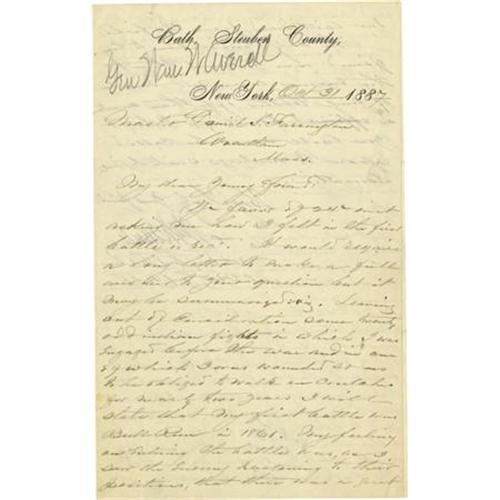 Bath, Steuben County,
Gen Wm W Averell
New York, Oct 31 1887
Master Daniel S. Farrington
Mass.
My dear Young friend:
Yr favor of 24th inst
asking me how I felt in the first
battle is rec'd. It would require
a long letter to make a full
answer to your question but it
may be summarized viz. Leaving
out of consideration some twenty
odd indian fights in which I was
engaged before the war and in one
of which I was wounded so as
to be obliged to walk on crutches
for nearly two years I will
state that my first battle was
Bull Run in 1861. My feeling
on entering the battle was, as I
saw the enemy hastening to their
positions, that there was a great